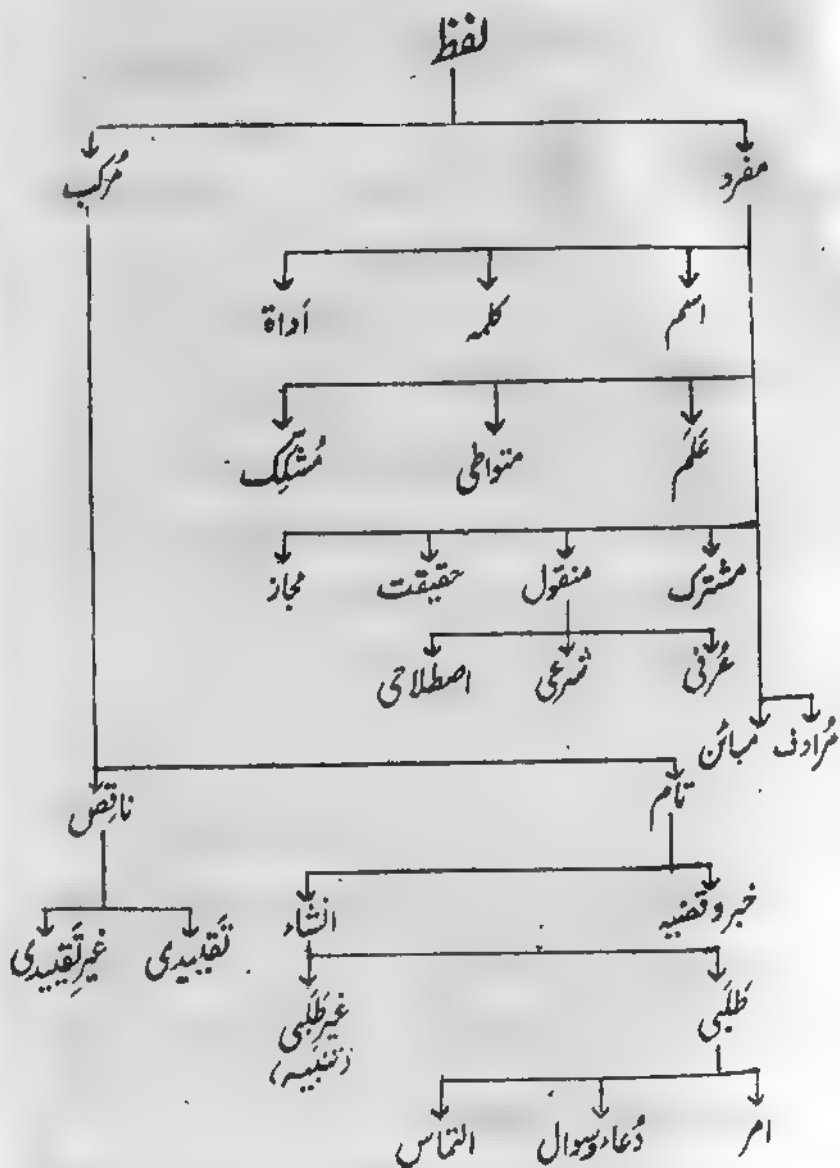 لفظ
مفرد مُرکب
اسم کلمہ اَداۃ
عَلَم متواطی مُشَکِّک
مشترک منقول حقیقت مجاز
عُرفی شرعی اصطلاحی
مُرادف مبائن
تام ناقِص
خبر و قضیہ انشاء تَقییدی غیرِ تَقییدی
طَلَبی غیرِ طَلَبی
(تنبیہ)
امر دُعاء و سوال التماس